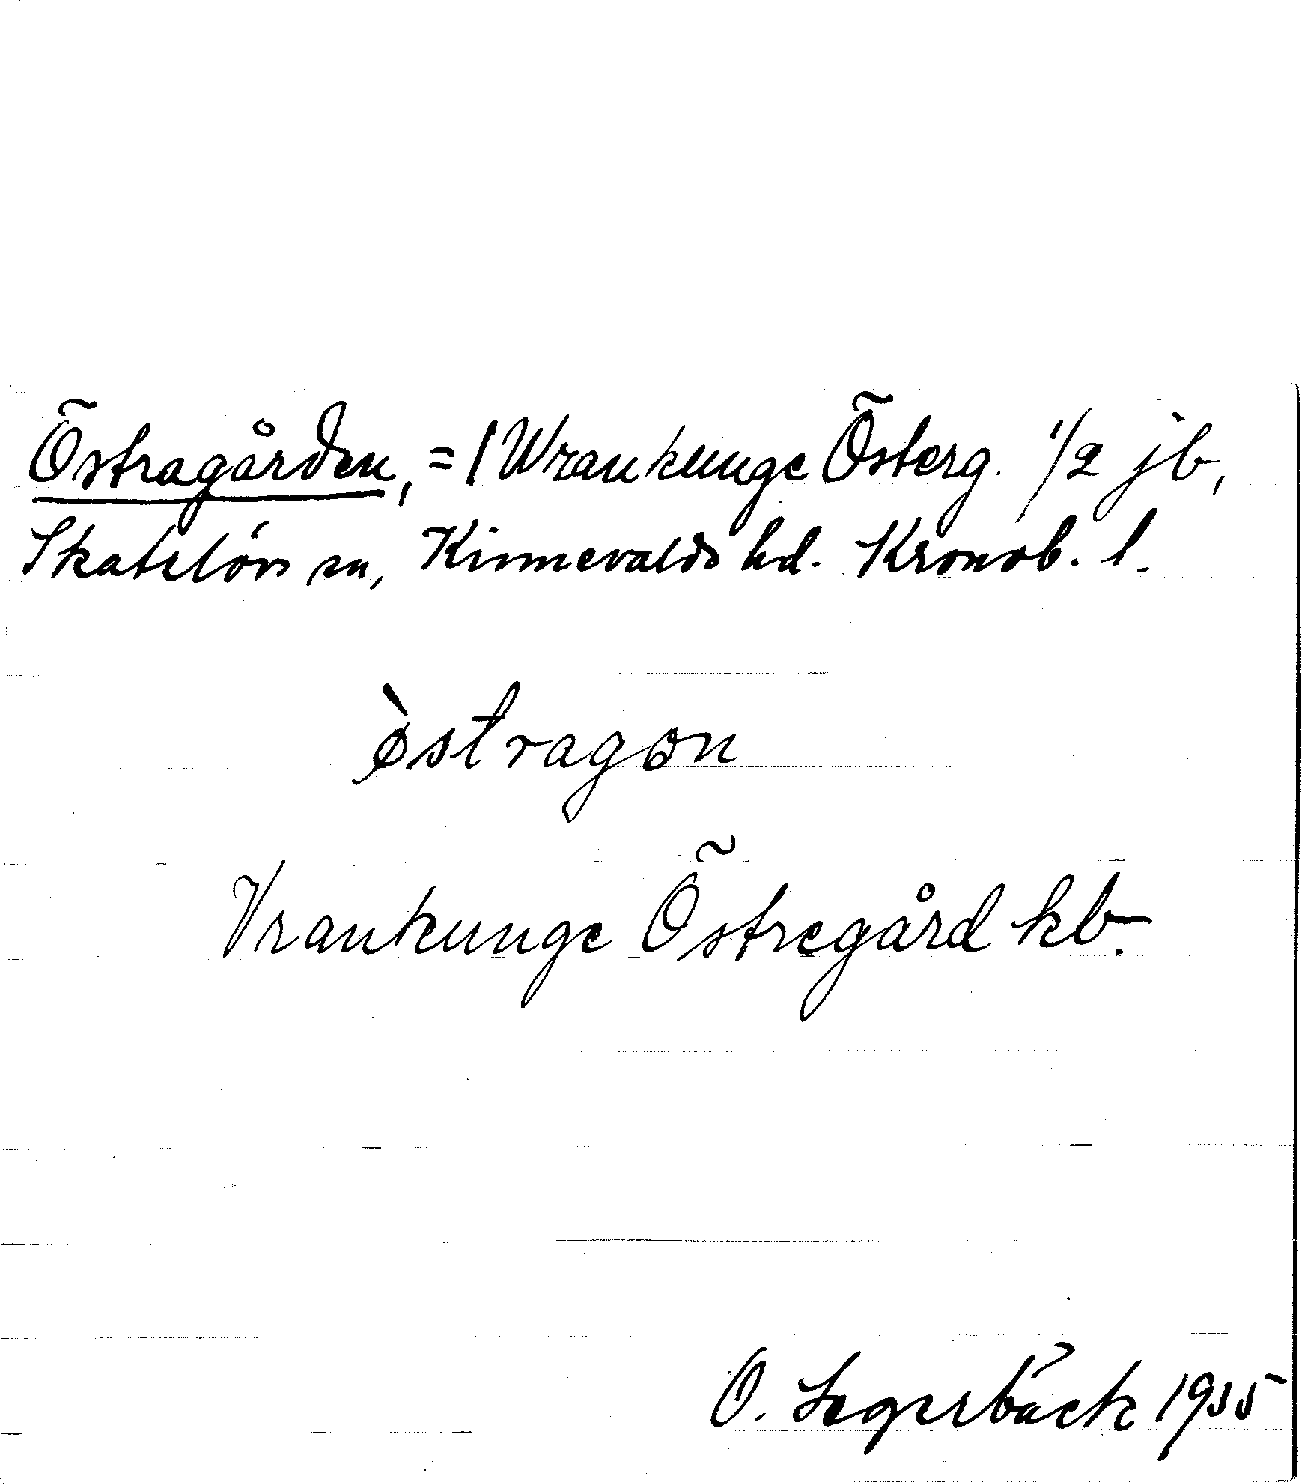 Östragården, = / Wrankunge Österg. 1/2 jb,
Skatelövs sn, Kinnevalds hd. Kronob. l.
ø̀stragon
Vrankunge Östregård kb.
O. Segerbäck 1935